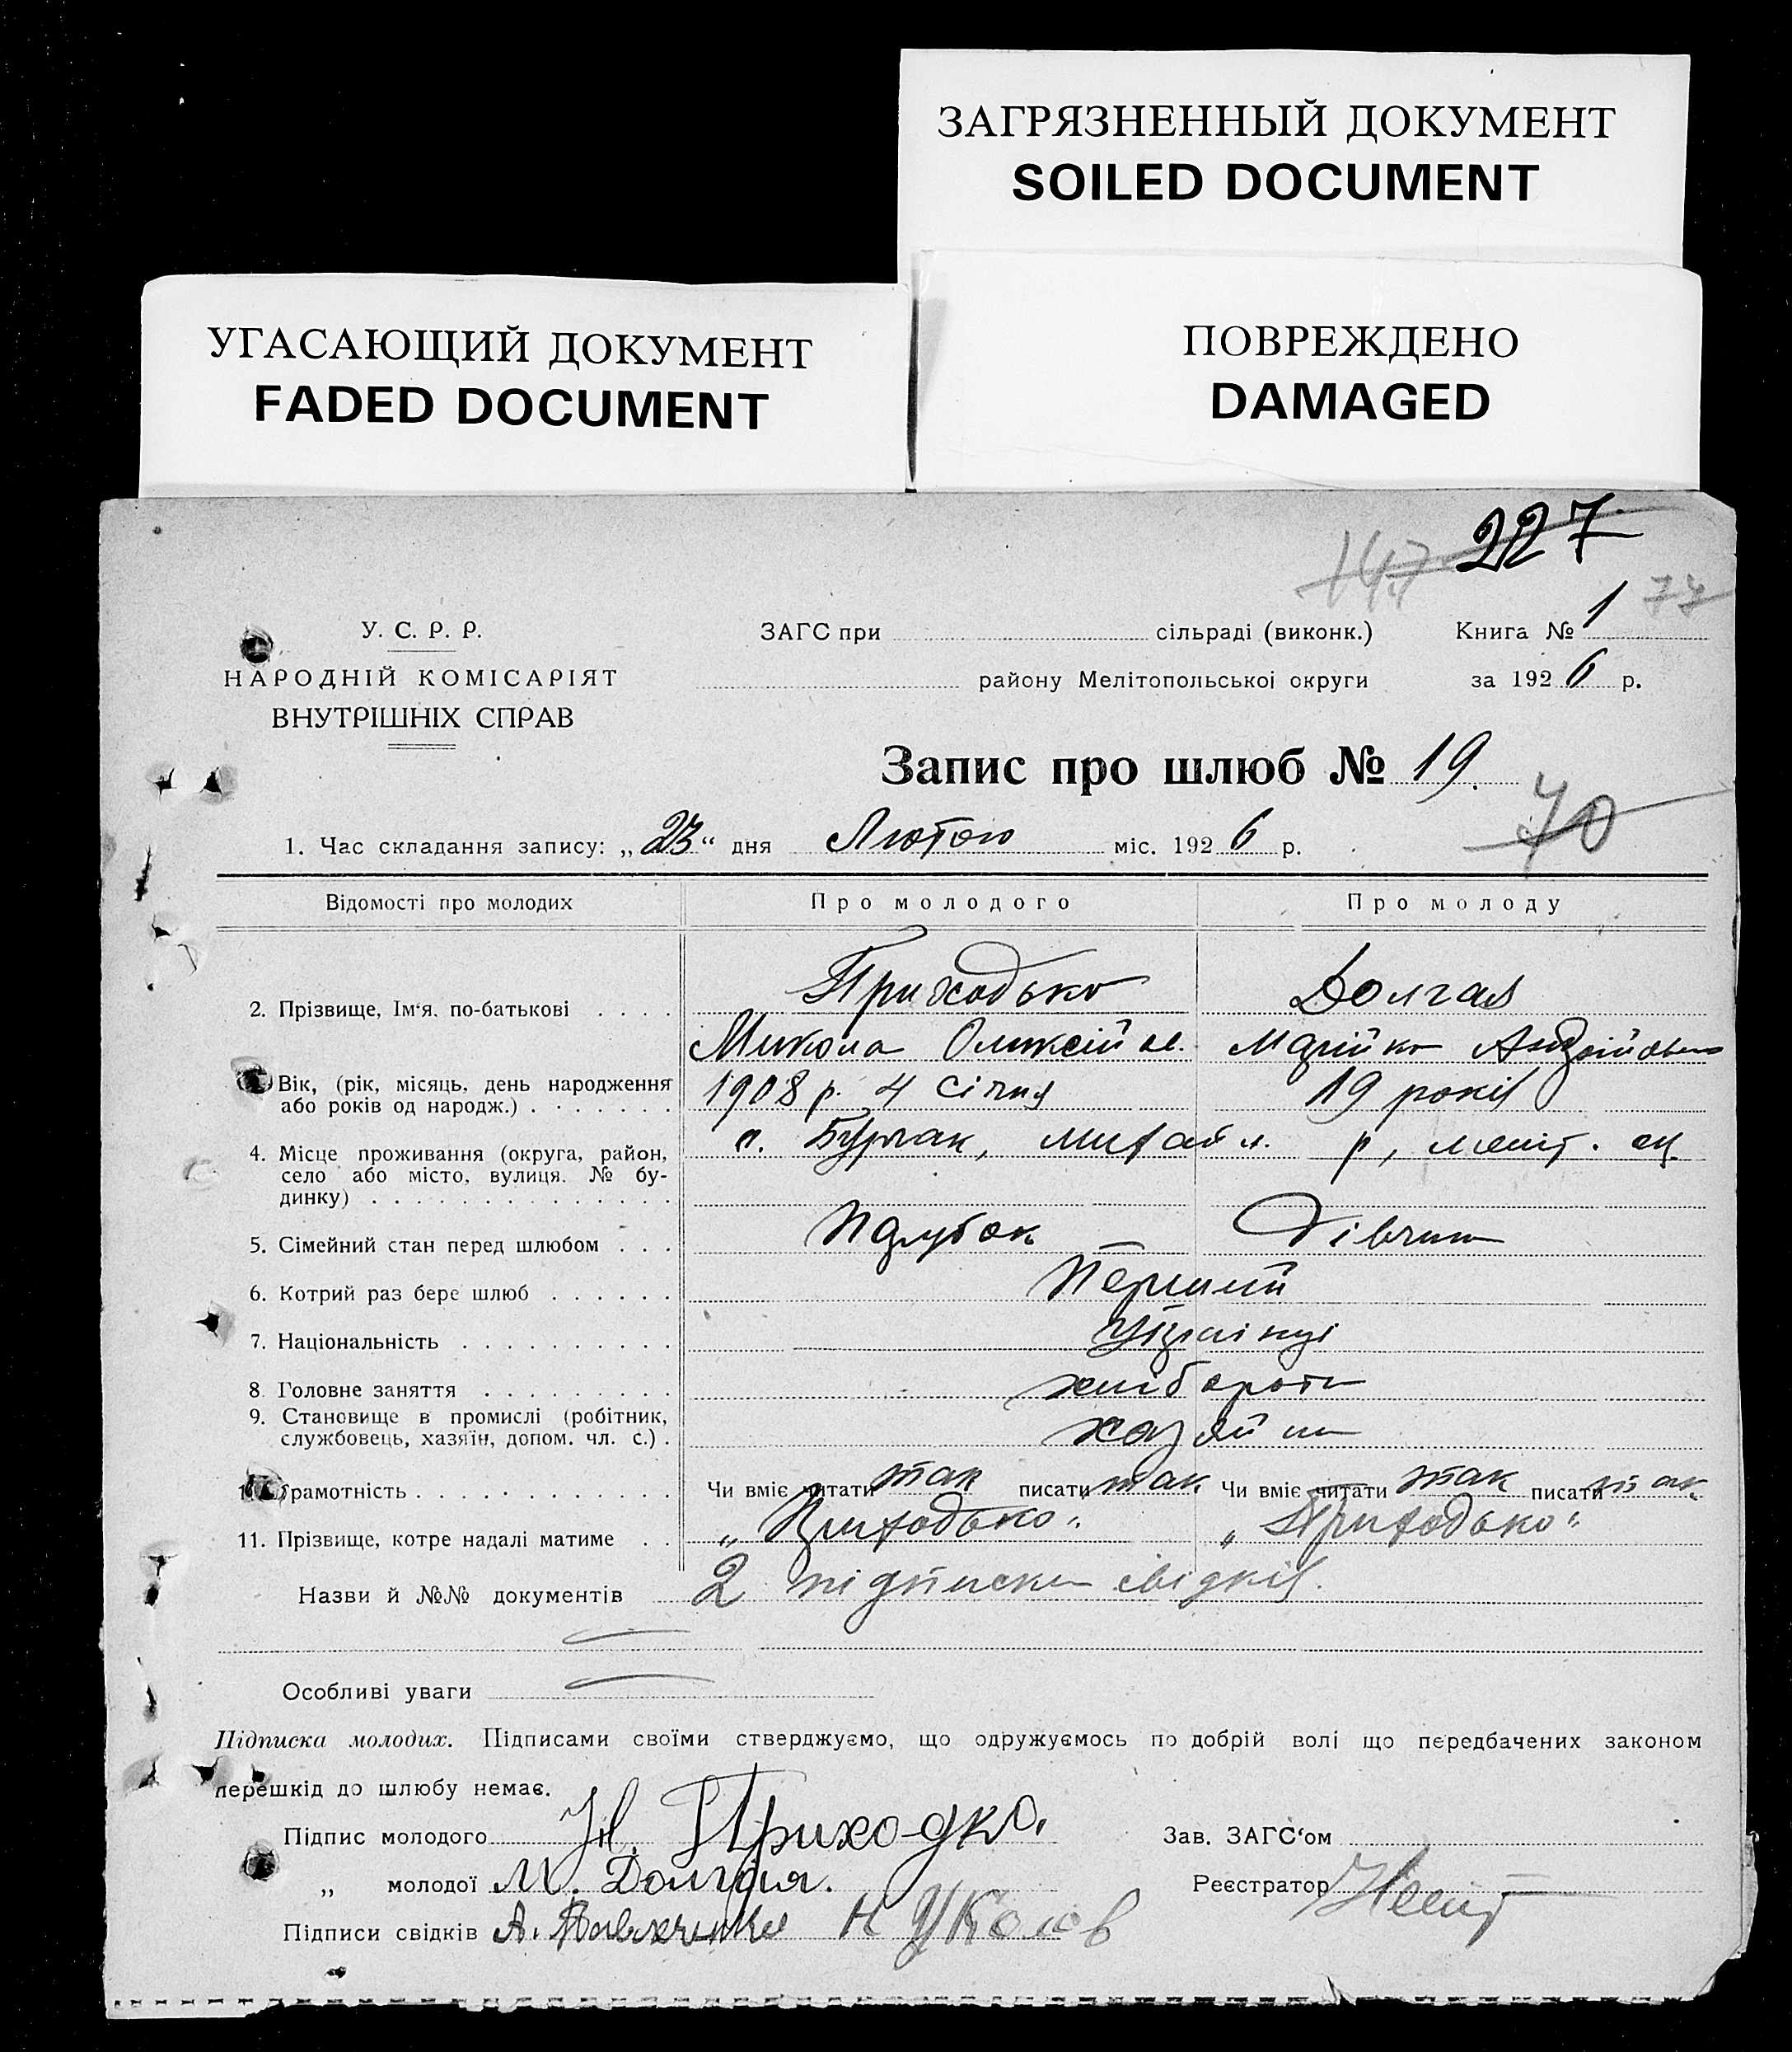 ЗАГРЯЗНЕННЫЙ ДОКУМЕНТ
SOILED DOCUMENT
УГАСАЮЩИЙ ДОКУМЕНТ
FADED DOCUMENT
ПОВРЕЖДЕНО
DAMAGED
227
147
77
У. С. Р. Р.
НАРОДНІЙ КОМІСАРІЯТ
ВНУТРІШНІХ СПРАВ
ЗАГС при сільраді (виконк.) Книга № 1
району Мелітопольської округи за 1926 р.
Запис про шлюб № 19.
70
1. Час складання запису: „23“ дня Лютого міс. 1926 р.
Відомості про молодих Про молодого Про молоду
2. Прізвище, Ім'я, по-батькові . . . . Приходько Долгая
Микола Олексійов. Марійка Андрійовна
Вік, (рік, місяць, день народження 1908 р. 4 Січня 19 років
або років од народж.) . . . . . . .
4. Місце проживання (округа, район, с. Бурчак, Михайл. р, меліт. ок.
село або місто, вулиця. № бу-
динку) . . . . . . . . . . . . . .
5. Сімейний стан перед шлюбом . . . Парубок Дівчина
6. Котрий раз бере шлюб . . . . . . Перший
7. Національність . . . . . . . . . . Українці
8. Головне заняття . . . . . . . . . хліборобы
9. Становище в промислі (робітник, хазяїни
службовець, хазяїн, допом. чл. с.) .
Грамотність . . . . . . . . . . . . Чи вміє читати так писати так Чи вміє читати так писати так
11. Прізвище, котре надалі матиме . . „Приходько“ „Приходько“
Назви й №№ документів 2 підписки свідків.
Особливі уваги
Підписка молодих. Підписами своїми стверджуємо, що одружуємось по добрій волі що передбачених законом
перешкід до шлюбу немає.
Підпис молодого Н. Приходко. Зав. ЗАГС'ом
„ молодої М. Долгая. Реєстратор
Підписи свідків А. Н Уколов